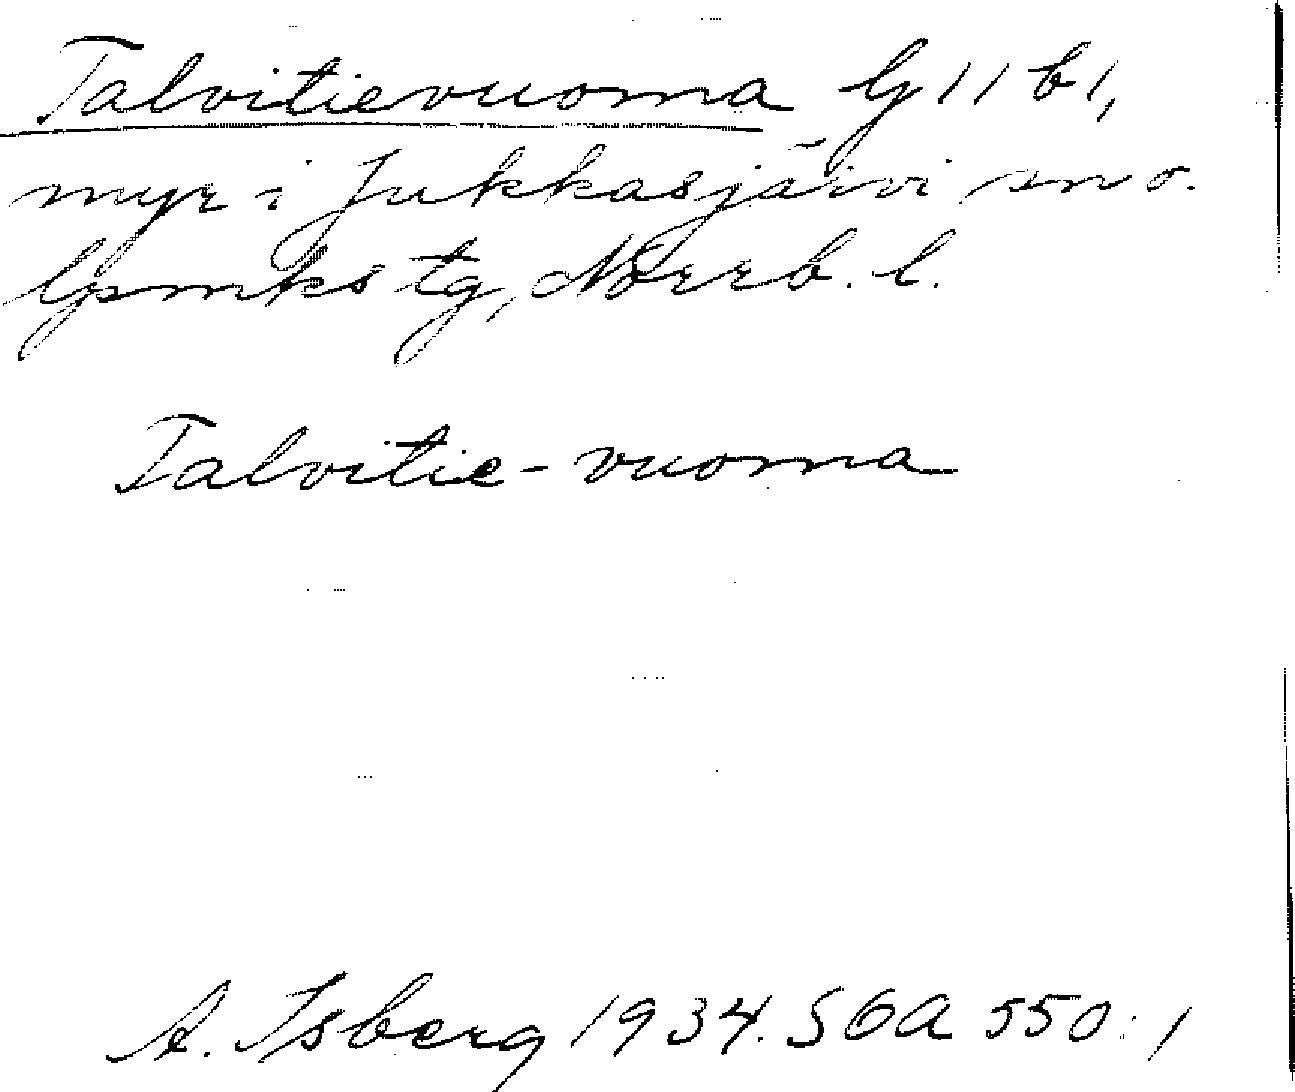 Talvitievuoma lj 11 b 1,
myr i Jukkasjärvi sn o.
lpmkstg, Norrb. l.
Talvitie-vuoma
A. Isberg 1934. SOA 550:1